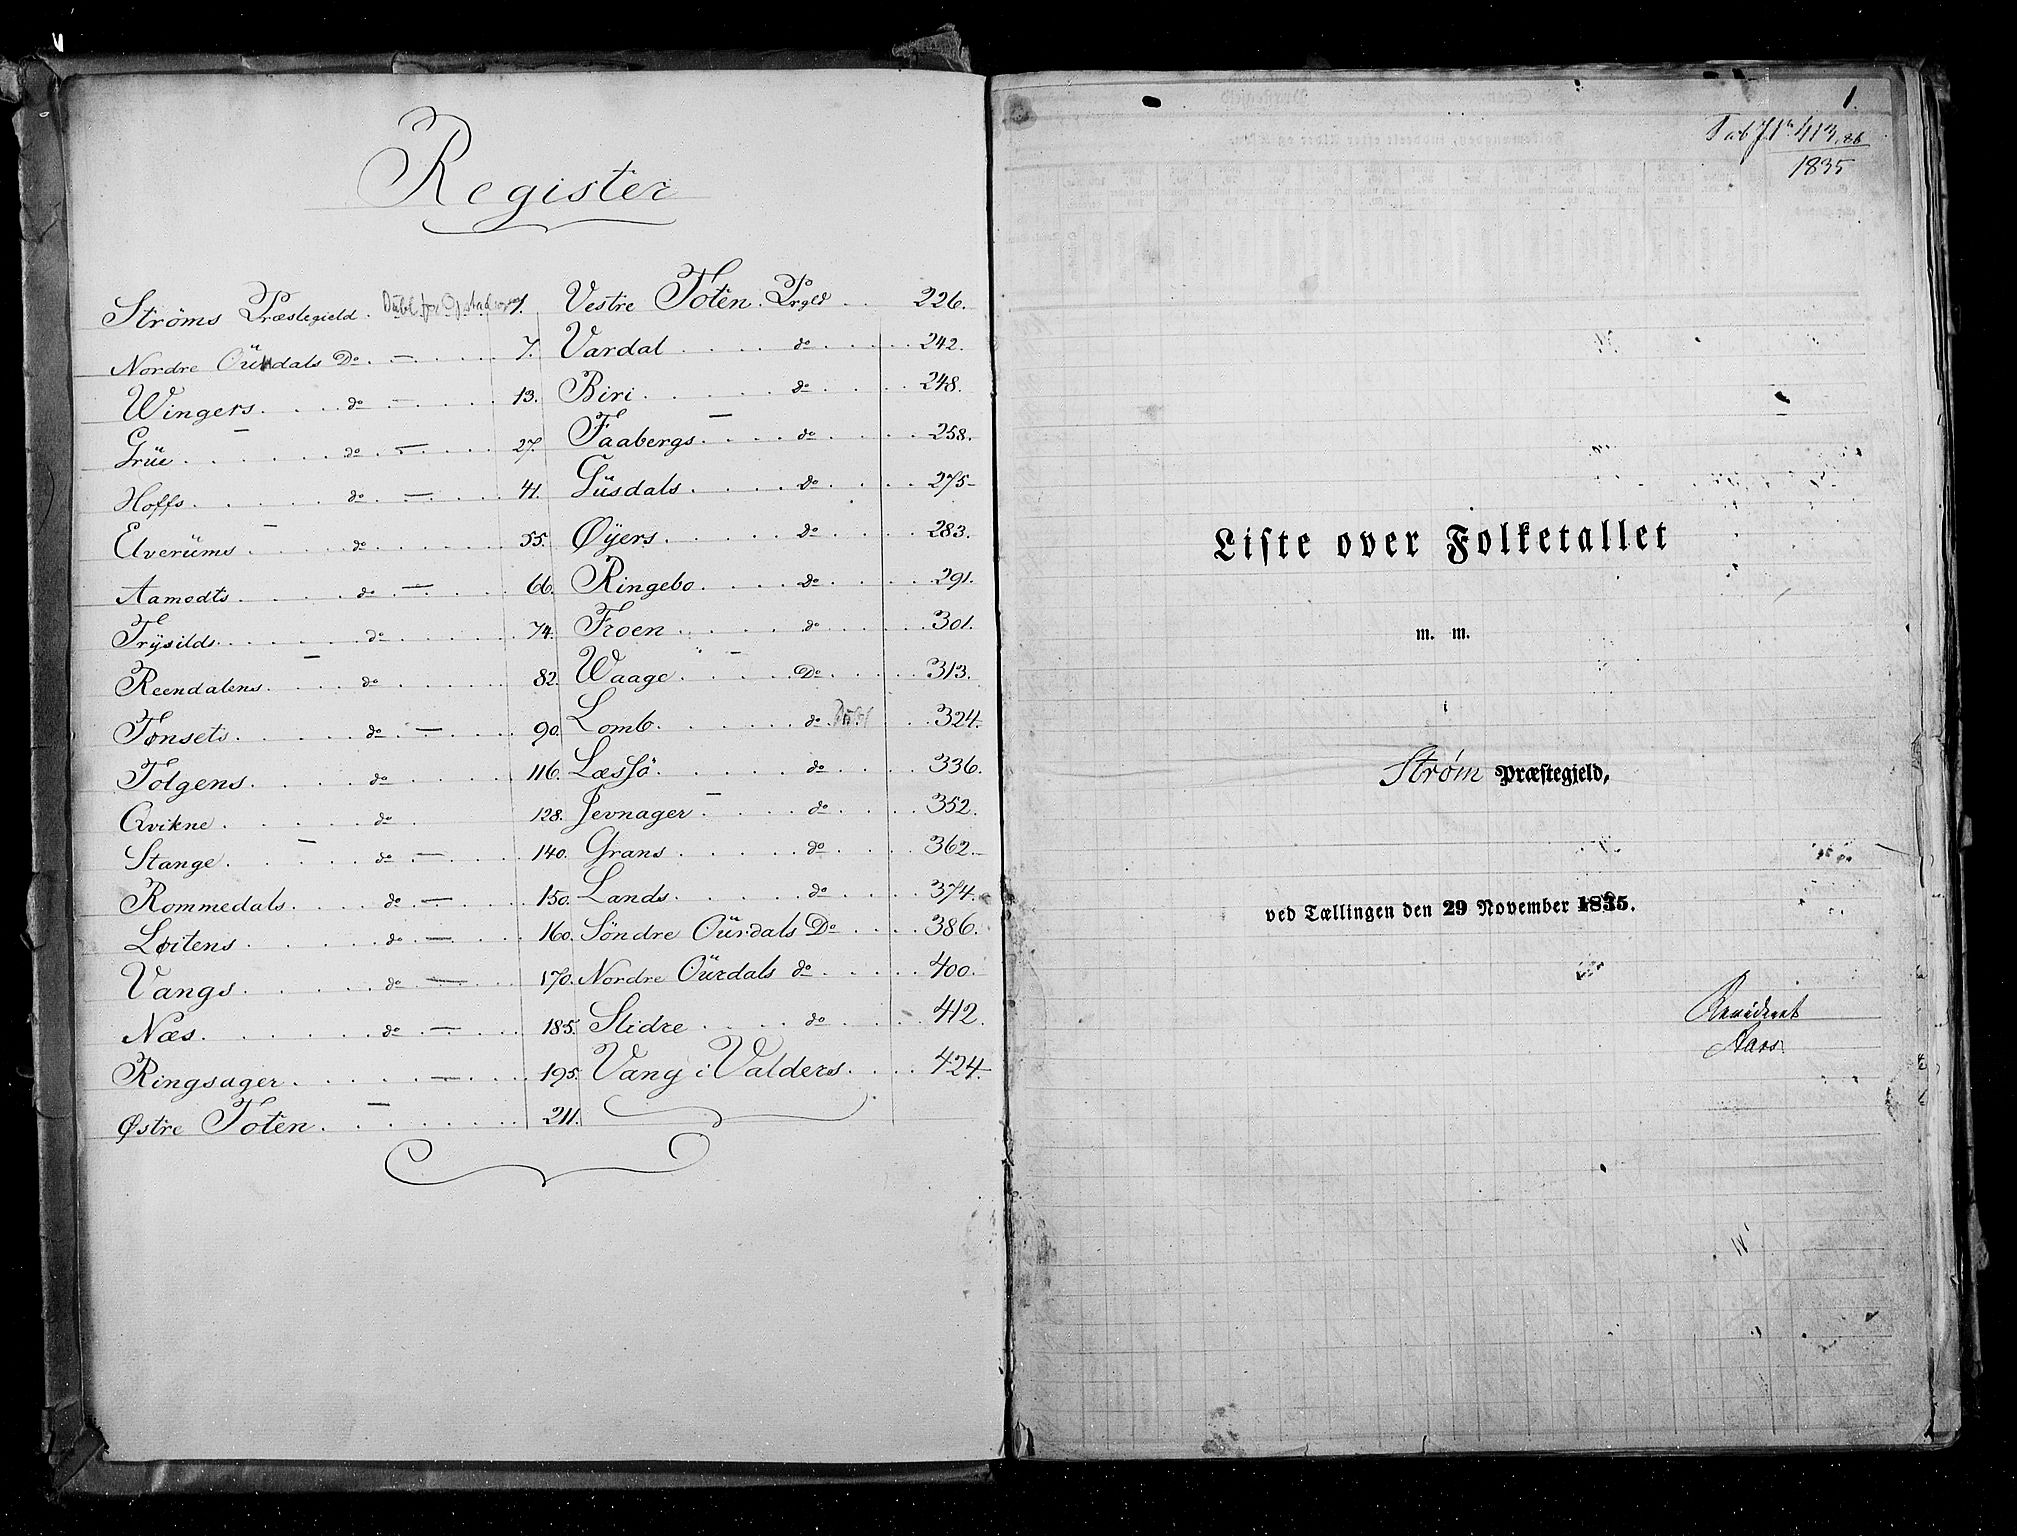 Register
Ströms Præstegield . 1.
Nordre Oürdals Do . — . 7.
Wingers . do — . 13.
Grüe . do — . 27.
Hoffs . do . — . 41.
Elverüms . do . 55.
Aamodts . do . — . 66.
Trÿsilds . do . 74.
Reendalens . do . 82.
Tønsets . do . — . 90.
Tolgens . do . 116.
Qvikne . do . 128.
Stange . do . — . 140.
Rommedals . do . — . 150.
Løitens . do . — . 160.
Vangs . do . — . 170.
Næs . do . — . 185.
Ringsager . — . 195.
Østre Toten . 211.
Vestre Toten Prgld . 226.
Vardal . do . 242.
Biri . do . 248.
Faabergs . do . 258.
Güsdals . Do . 275-
Øÿers . Do . 283.
Ringebo . Do . 291.
Froen . do . 301.
Waage . Do . 313.
Lomb . do . 324.
Læssö . do . 336.
Jevnager . do . 352.
Grans . do . 362.
Lands . do . 374.
Söndre Oürdals Do . 386.
Nordre Oürdals do . 400.
Slidre . do . 412.
Vang i Valders . 424.
1.
1835
Liste over Folketallet
m. m.
i
Strøm Præstegjeld,
ved Tællingen den 29 November 1835.
Revideret
Aars